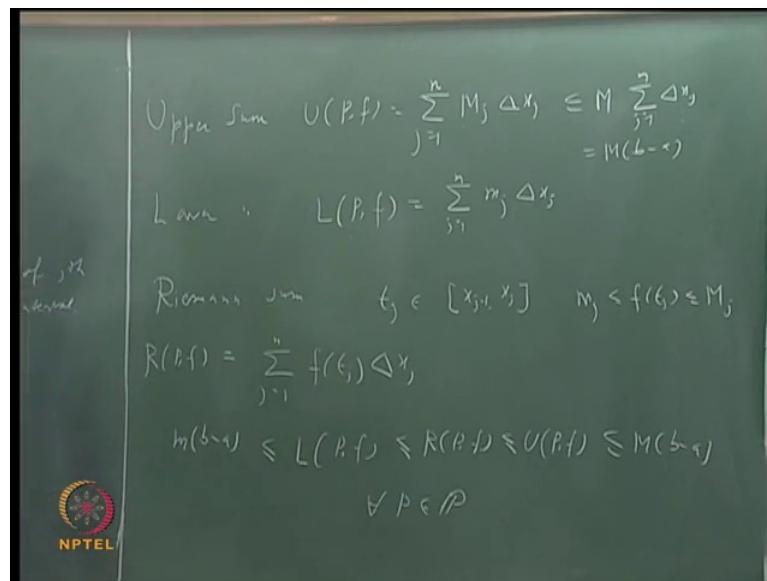 Upper Sum U(P,f) = \sum_{j=1}^{n} M_j Δx_j ≤ M \sum_{j=1}^{n} Δx_j
= M(b-a)
L(P,f) = \sum_{j=1}^{n} m_j Δx_j
of jth
Riemann sum t_j ∈ [x_{j-1}, x_j] m_j ≤ f(t_j) ≤ M_j
R(P,f) = \sum_{j=1}^{n} f(t_j) Δx_j
m(b-a) ≤ L(P,f) ≤ R(P,f) ≤ U(P,f) ≤ M(b-a)
∀ P ∈ ℙ
NPTEL